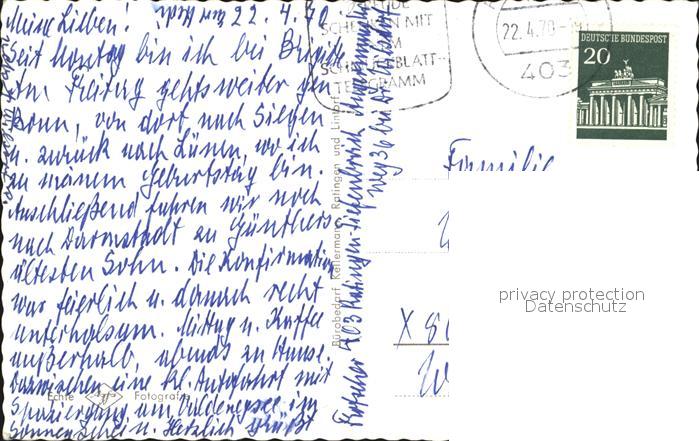 22.4.70
Meine Lieben.
Seit Montag bin ich bei Brigitte
Am Freitag gehts weiter gen
Bonn, von dort nach Siegen
u. zurück nach Lünen, wo ich
zu meinem Geburtstag bin.
Anschließend fahren wir noch
nach Darmstadt zu Günthers
ältesten Sohn. Die Konfirmation
war feierlich u. danach recht
unterhalsam. Mittag u. Kaffee
außerhalb, abends zu Hause.
Dazwischen eine kl. Autofahrt mit
Spaziergang am
Sonnenschein u. Herzlich grüßt
Echte
Fotografie
Bürobedarf Kellermann, Ratingen und Lintorf
403 Ratingen-Tiefenbroich
Weg 36 bei
SCHENKEN MIT
SCHMUCKBLATT-
TELEGRAMM
22.4.70
403
DEUTSCHE BUNDESPOST
20
Familie
X 80
W
privacy protection
Datenschutz